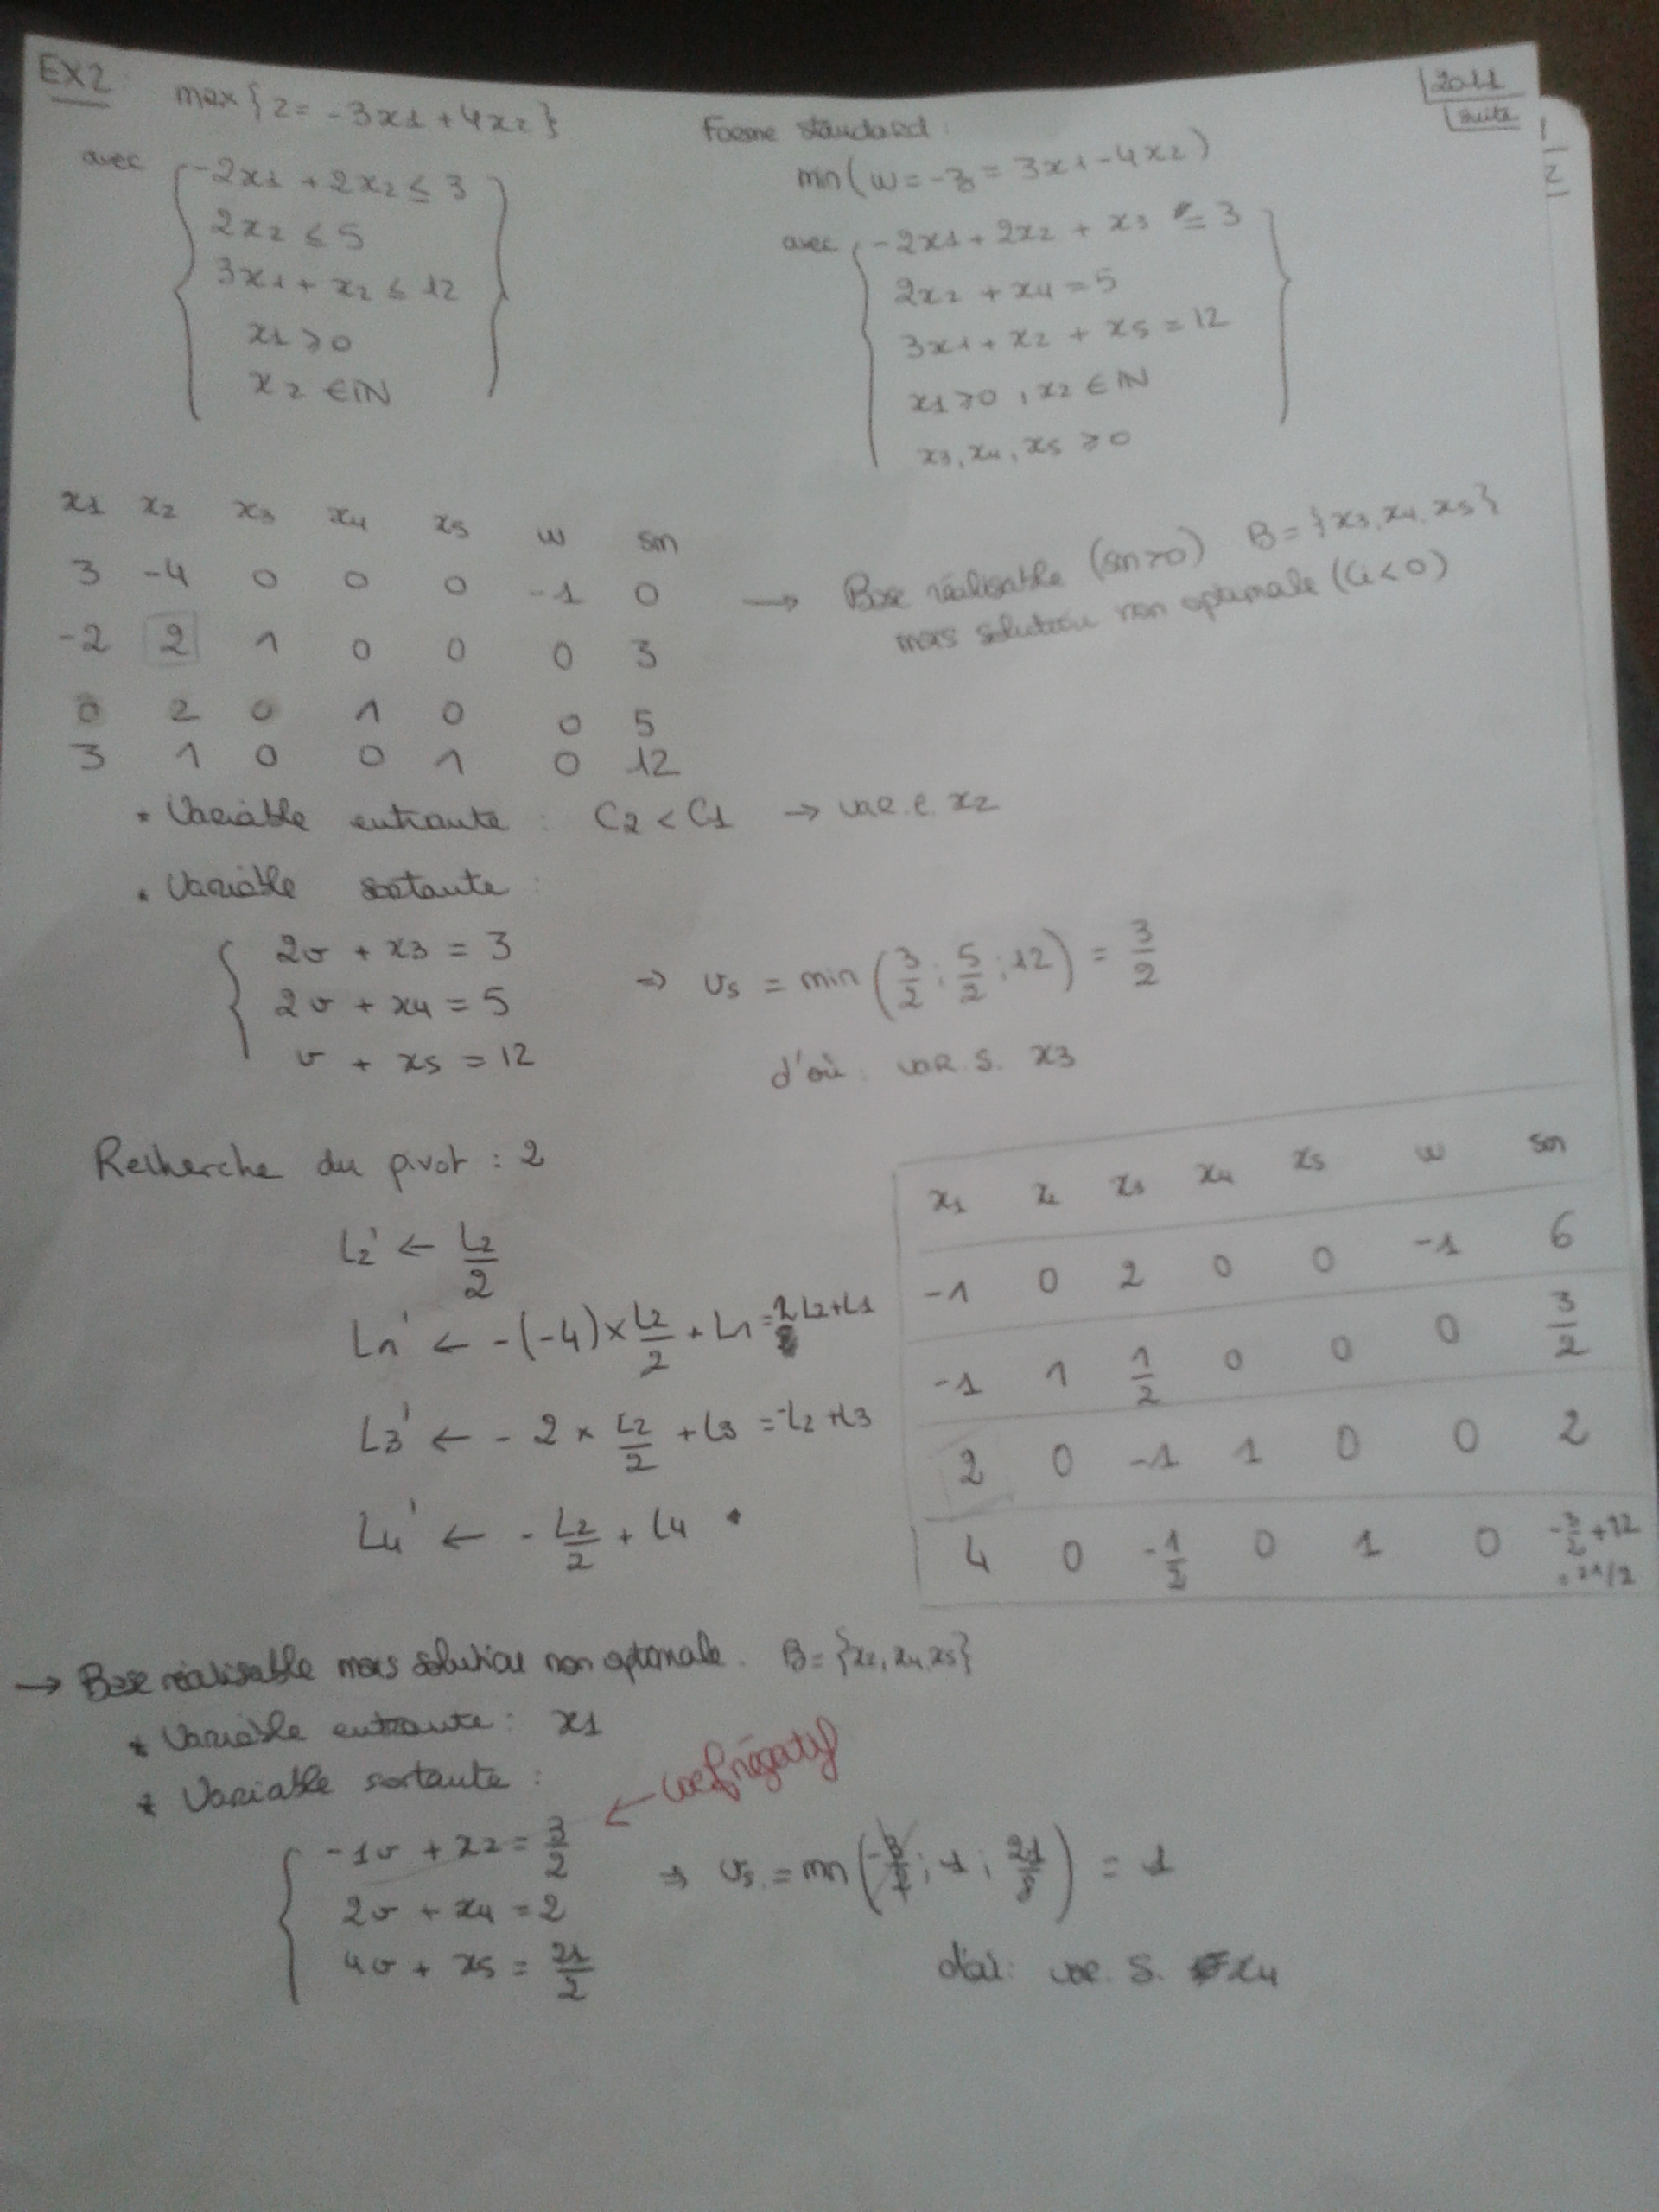 EX2
2011
suite
1/2
max{z = -3x1 + 4x2}
avec
-2x1 + 2x2 ≤ 3
2x2 ≤ 5
3x1 + x2 ≤ 12
x1 ≥ 0
x2 ∈ IN
Forme standard :
min(w = -z = 3x1 - 4x2)
avec
-2x1 + 2x2 + x3 = 3
2x2 + x4 = 5
3x1 + x2 + x5 = 12
x1 ≥ 0, x2 ∈ IN
x3, x4, x5 ≥ 0
x1 x2 x3 x4 x5 w sm
3 -4 0 0 0 -1 0
-2 2 1 0 0 0 3
0 2 0 1 0 0 5
3 1 0 0 1 0 12
→ Base réalisable (sm>0) B = {x3, x4, x5}
mais solution non optimale (Ci<0)
* Variable entrante : C2 < C1 → var. e. x2
* Variable sortante :
2v + x3 = 3
2v + x4 = 5
v + x5 = 12
⇒ vs = min(3/2 ; 5/2 ; 12) = 3/2
d'où : var. s. x3
Recherche du pivot : 2
L2' ← L2/2
L1' ← -(-4) × L2/2 + L1 = 2L2+L1
L3' ← - 2 × L2/2 + L3 = -L2+L3
L4' ← - L2/2 + L4
x1 x2 x3 x4 x5 w sm
-1 0 2 0 0 -1 6
-1 1 1/2 0 0 0 3/2
2 0 -1 1 0 0 2
4 0 -1/2 0 1 0 -3/2+12
= 21/2
→ Base réalisable mais solution non optimale. B = {x2, x4, x5}
* Variable entrante : x1
* Variable sortante :
-1v + x2 = 3/2
← coef négatif
2v + x4 = 2
4v + x5 = 21/2
⇒ vs = min( ; 1 ; 21/8) = 1
d'où : var. s. x4